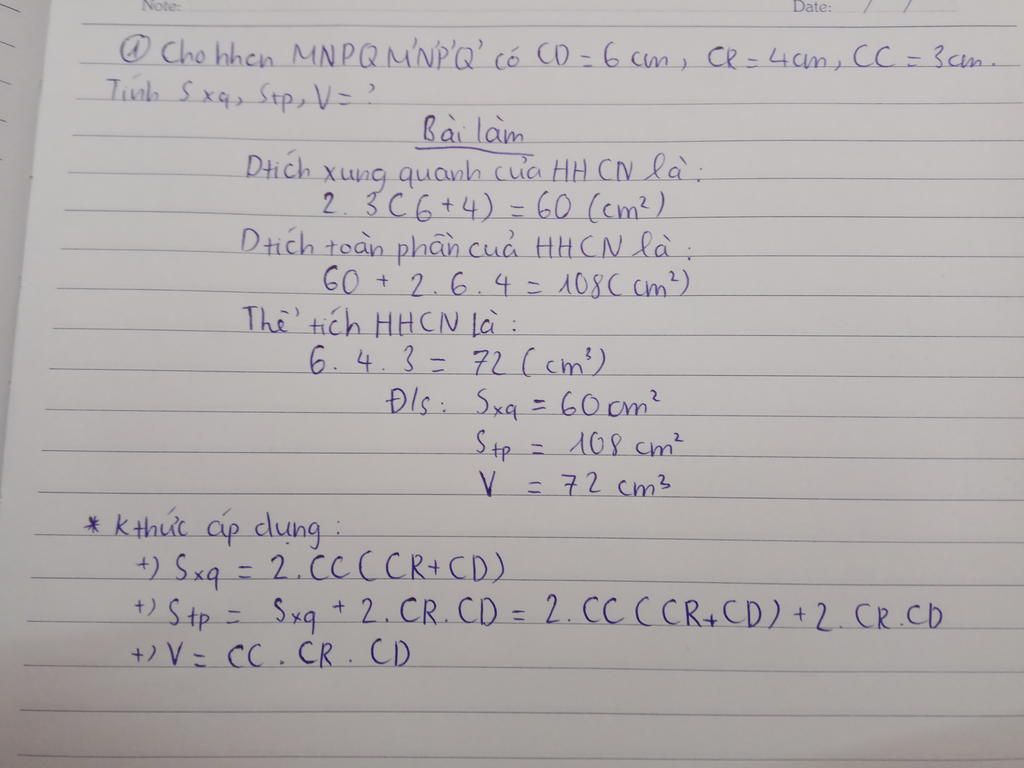 Note: Date: / /
① Cho hhcn MNPQM'N'P'Q' có CD = 6 cm, CR = 4cm, CC = 3cm.
Tính Sxq, Stp, V = ?
Bài làm
Dtích xung quanh của HHCN là:
2. 3(6+4) = 60 (cm²)
Dtích toàn phần của HHCN là:
60 + 2.6.4 = 108(cm²)
Thể tích HHCN là:
6. 4. 3 = 72 (cm³)
Đ/s: Sxq = 60cm²
Stp = 108 cm²
V = 72 cm³
* Kthức áp dụng:
+) Sxq = 2.CC(CR+CD)
+) Stp = Sxq + 2.CR.CD = 2.CC(CR+CD)+2.CR.CD
+) V = CC.CR.CD